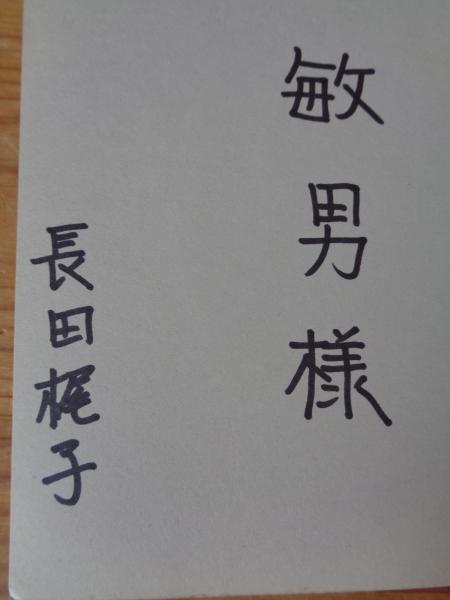 敏男様
長田梶子